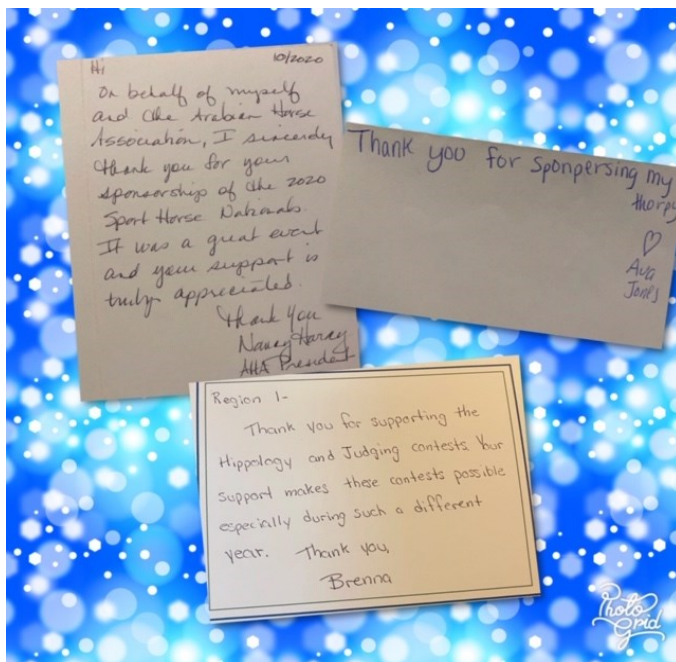 Hi 10/2020
On behalf of myself
and the Arabian Horse
Association, I sincerely
thank you for your
sponsorship of the 2020
Sport Horse Nationals.
It was a great event
and your support is
truly appreciated.
Thank you
Nancy Harvey
AHA President
Thank you for sponpersing my
thorpy
♡
Ava
Jones
Region 1-
Thank you for supporting the
Hippology and Judging contests. Your
support makes these contests possible
especially during such a different
year. Thank you,
Brenna
Photo
Grid